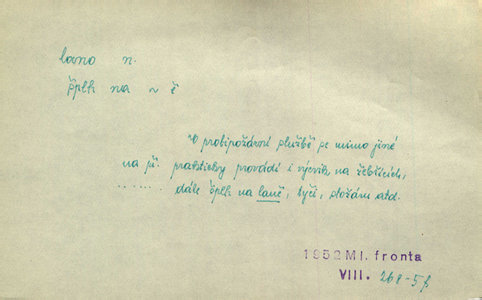 lano n.
šplh na n ě
V protipožární službě se mimo jiné
na př. prakticky provádí i výcvik na žebřících,
....... dále šplh na laně, tyči, složám atd.
1952 Ml. fronta
VIII. 268-5/